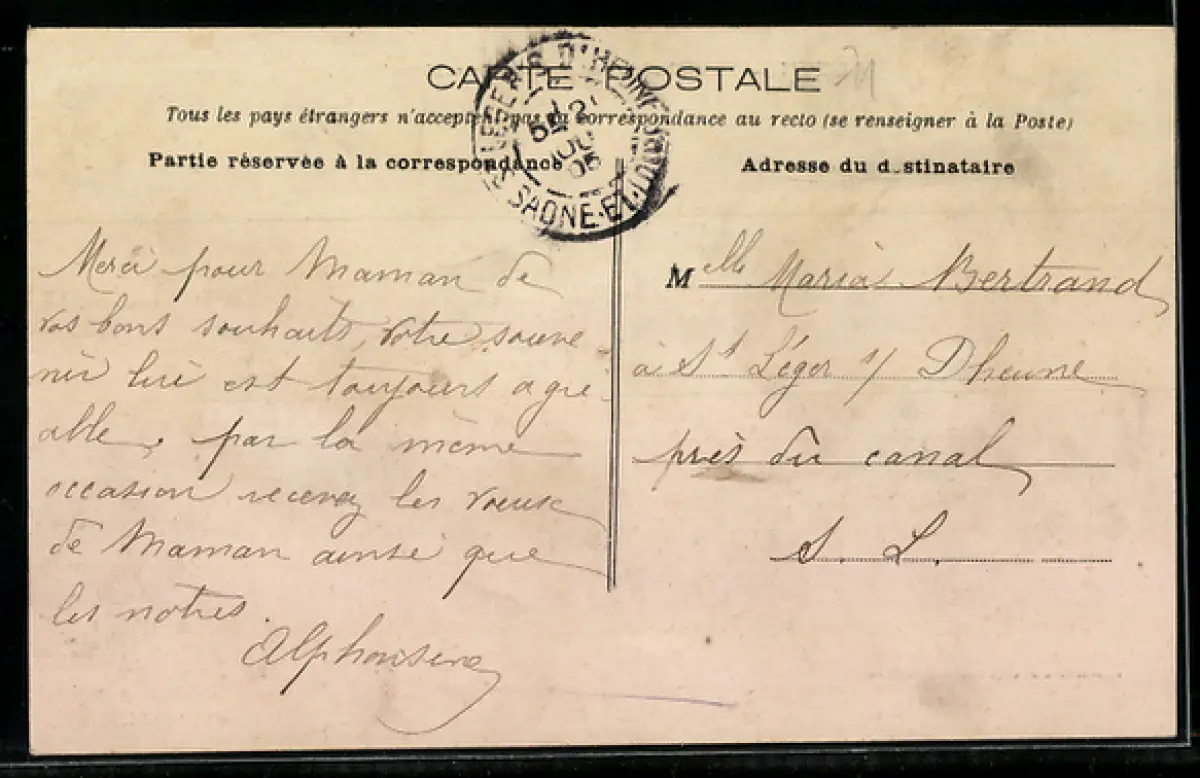 CARTE POSTALE
Tous les pays étrangers n'acceptent pas la correspondance au recto (se renseigner à la Poste)
Partie réservée à la correspondance
Adresse du d stinataire
SAONE-ET-LOIRE
05
Merci pour Maman de
vos bons souhaits, votre souve-
nir lui est toujours agré-
able, par la même
occasion recevez les vœux
de Maman ainsi que
les notres.
Alphonsine
Melle Maria Bertrand
à St Léger s/ Dheune
près du canal
S. L.